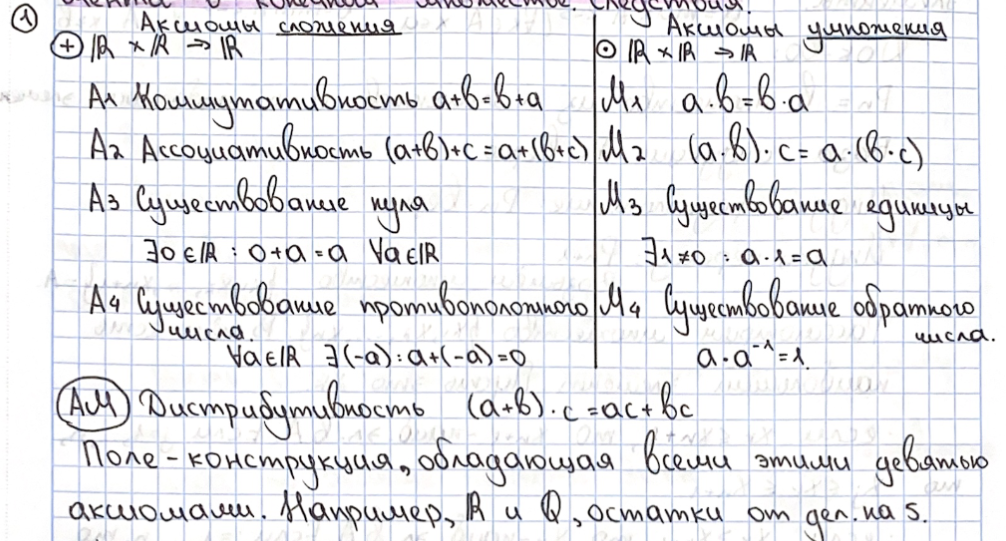 конечном множестве. Следствия.
① Аксиомы сложения
⊕ ℝ × ℝ → ℝ
A1 Коммутативность a+b=b+a
A2 Ассоциативность (a+b)+c=a+(b+c)
A3 Существование нуля
∃0∈ℝ : 0+a=a ∀a∈ℝ
A4 Существование противоположного
числа.
∀a∈ℝ ∃(-a) : a+(-a)=0
Аксиомы умножения
⊙ ℝ × ℝ → ℝ
M1 a·b=b·a
M2 (a·b)·c=a·(b·c)
M3 Существование единицы
∃1≠0 : a·1=a
M4 Существование обратного
числа.
a·a⁻¹=1.
AM Дистрибутивность (a+b)·c=ac+bc
Поле - конструкция, обладающая всеми этими девятью
аксиомами. Например, ℝ и ℚ, остатки от дел. на 5.